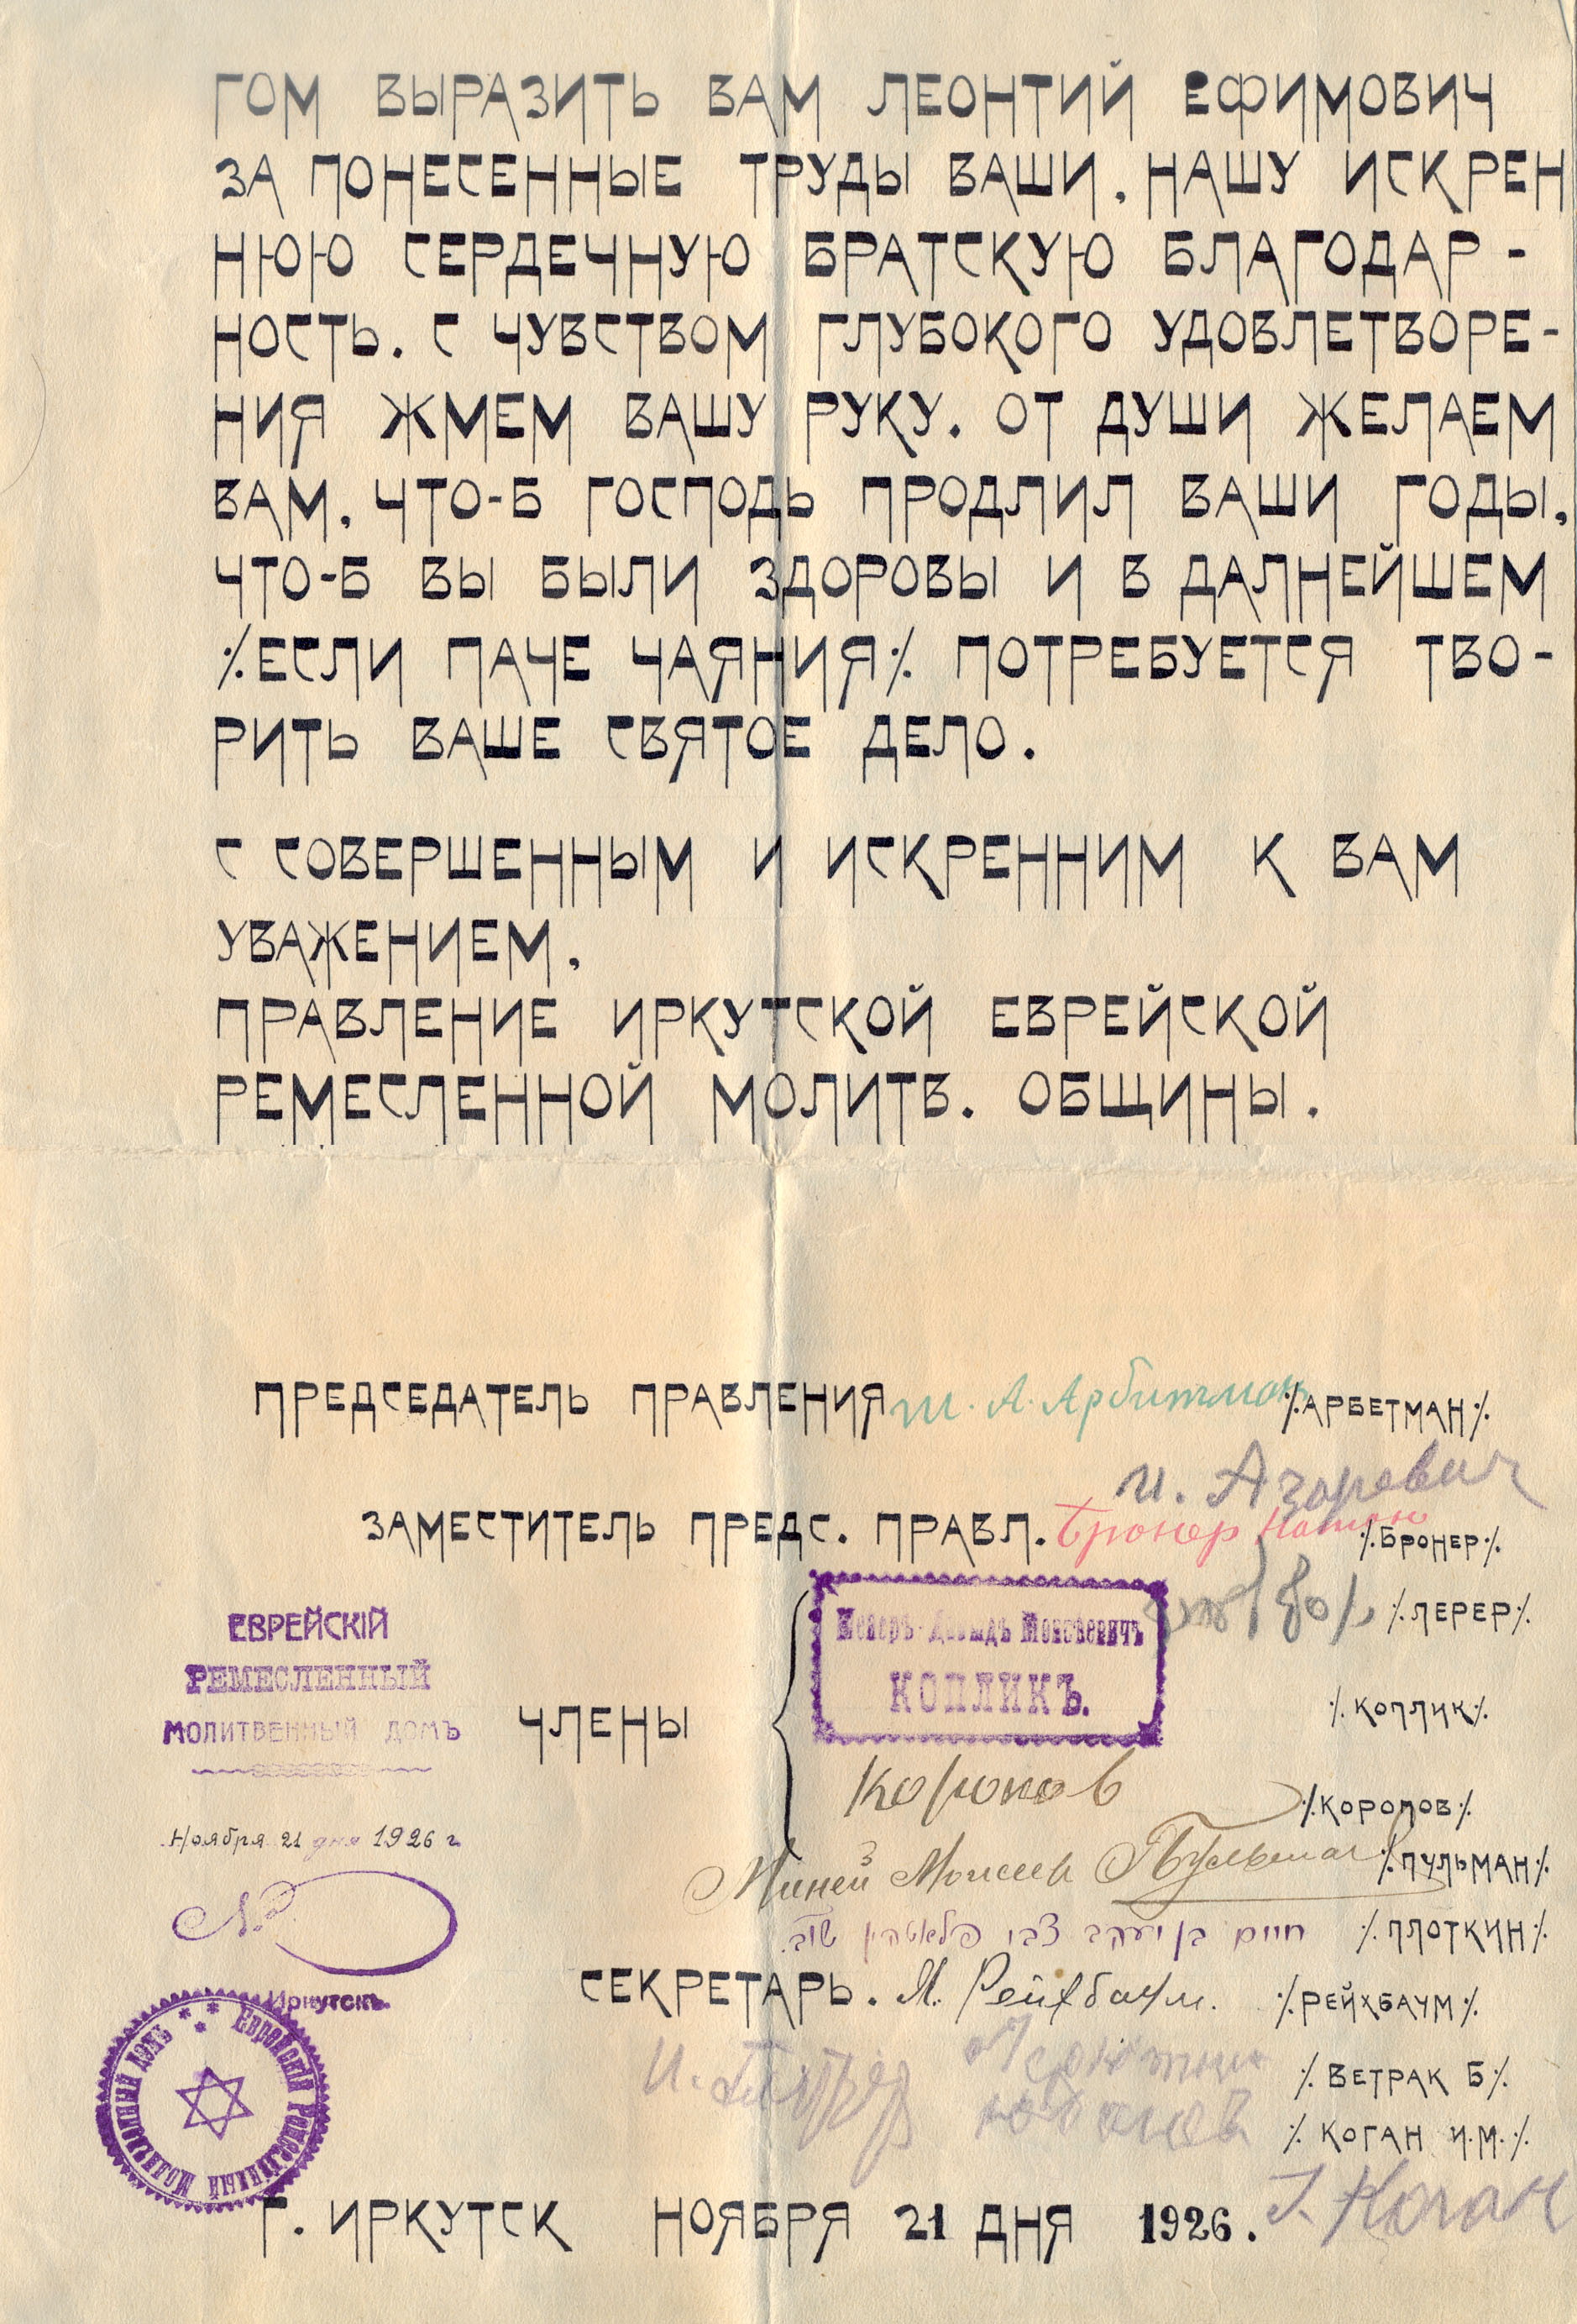 ГОМ ВЫРАЗИТЬ ВАМ ЛЕОНТИЙ ЕФИМОВИЧ
ЗА ПОНЕСЕННЫЕ ТРУДЫ ВАШИ, НАШУ ИСКРЕН
НЮЮ СЕРДЕЧНУЮ БРАТСКУЮ БЛАГОДАР-
НОСТЬ. С ЧУВСТВОМ ГЛУБОКОГО УДОВЛЕТВОРЕ-
НИЯ ЖМЕМ ВАШУ РУКУ. ОТ ДУШИ ЖЕЛАЕМ
ВАМ, ЧТО-Б ГОСПОДЬ ПРОДЛИЛ ВАШИ ГОДЫ,
ЧТО-Б ВЫ БЫЛИ ЗДОРОВЫ И В ДАЛНЕЙШЕМ
⁒ЕСЛИ ПАЧЕ ЧАЯНИЯ⁒ ПОТРЕБУЕТСЯ ТВО-
РИТЬ ВАШЕ СВЯТОЕ ДЕЛО.
С СОВЕРШЕННЫМ И ИСКРЕННИМ К ВАМ
УВАЖЕНИЕМ,
ПРАВЛЕНИЕ ИРКУТСКОЙ ЕВРЕЙСКОЙ
РЕМЕСЛЕННОЙ МОЛИТВ. ОБЩИНЫ.
ПРЕДСЕДАТЕЛЬ ПРАВЛЕНИЯ Ш. А. Арбитман ⁒АРБЕТМАН⁒
И. Азаревич
ЗАМЕСТИТЕЛЬ ПРЕДС. ПРАВЛ. Бронер Натан ⁒БРОНЕР⁒
⁒ЛЕРЕР⁒
ЕВРЕЙСКІЙ
РЕМЕСЛЕННЫЙ
МОЛИТВЕННЫЙ ДОМЪ
Ноября 21 дня 1926 г.
№
Иркутскъ.
Еврейскій Ремесленный Молитвенный домъ
ЧЛЕНЫ
Давидъ Моисеевичъ
КОПЛИКЪ.
⁒КОПЛИК⁒
⁒КОРОПОВ⁒
Миней Моисеев Пульман ⁒ПУЛЬМАН⁒
חיים בן יעקב צבי פלאטקין שוב. ⁒ПЛОТКИН⁒
СЕКРЕТАРЬ. М. Рейхбаум. ⁒РЕЙХБАУМ⁒
⁒ВЕТРАК Б⁒
⁒КОГАН И.М.⁒
Коган
Г. ИРКУТСК НОЯБРЯ 21 ДНЯ 1926.